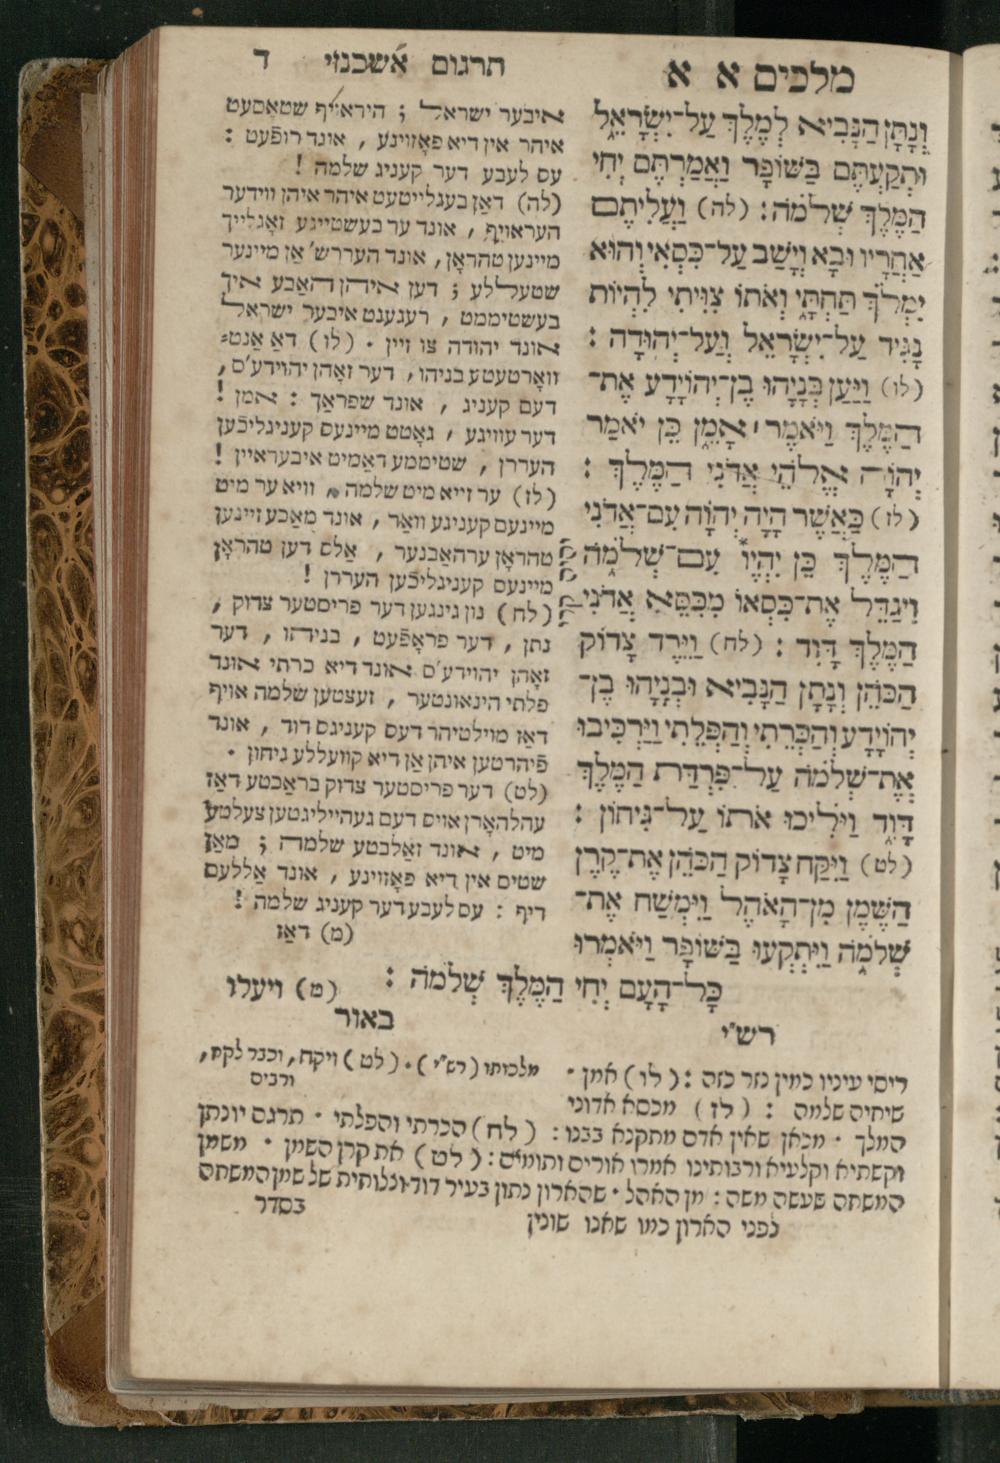 מלכים א א
תרגום אשכנזי ד
וְנָתָן הַנָּבִיא לְמֶלֶךְ עַל־יִשְׂרָאֵל
וּתְקַעְתֶּם בַּשּׁוֹפָר וַאֲמַרְתֶּם יְחִי
הַמֶּלֶךְ שְׁלֹמֹה: (לה) וַעֲלִיתֶם
אַחֲרָיו וּבָא וְיָשַׁב עַל־כִּסְאִי וְהוּא
יִמְלֹךְ תַּחְתָּי וְאֹתוֹ צִוִּיתִי לִהְיוֹת
נָגִיד עַל־יִשְׂרָאֵל וְעַל־יְהוּדָה :
(לו) וַיַּעַן בְּנָיָהוּ בֶן־יְהוֹיָדָע אֶת־
הַמֶּלֶךְ וַיֹּאמֶר ׀ אָמֵן כֵּן יֹאמַר
יְהוָֹה אֱלֹהֵי אֲדֹנִי הַמֶּלֶךְ :
(לז) כַּאֲשֶׁר הָיָה יְהוָֹה עִם־אֲדֹנִי
הַמֶּלֶךְ כֵּן יִהְיֶו עִם־שְׁלֹמֹה
וִיגַדֵּל אֶת־כִּסְאוֹ מִכִּסֵּא אֲדֹנִי
הַמֶּלֶךְ דָּוִד : (לח) וַיֵּרֶד צָדוֹק
הַכֹּהֵן וְנָתָן הַנָּבִיא וּבְנָיָהוּ בֶן־
יְהוֹיָדָע וְהַכְּרֵתִי וְהַפְּלֵתִי וַיַּרְכִּיבוּ
אֶת־שְׁלֹמֹה עַל־פִּרְדַּת הַמֶּלֶךְ
דָּוִד וַיֹּלִיכוּ אֹתוֹ עַל־גִּיחוֹן :
(לט) וַיִּקַּח צָדוֹק הַכֹּהֵן אֶת־קֶרֶן
הַשֶּׁמֶן מִן־הָאֹהֶל וַיִּמְשַׁח אֶת־
שְׁלֹמֹה וַיִּתְקְעוּ בַּשּׁוֹפָר וַיֹּאמְרוּ
כָּל־הָעָם יְחִי הַמֶּלֶךְ שְׁלֹמֹה :
(מ) ויעלו
איבער ישראל ; היראויף שטאסעט
איהר אין דיא פאָזוינע , אונד רופֿעט :
עס לעבע דער קעניג שלמה !
(לה) דאַן בעגלייטעט איהר איהן ווידער
העראויף , אונד ער בעשטייגע זאָגלייך
מיינען טהראָן, אונד העררש' אַן מיינער
שטעללע ; דען איהן האבע איך
בעשטיממט , רעגענט איבער ישראל
אונד יהודה צו זיין . (לו) דאַ אַנט=
וואָרטעטע בניהו, דער זאָהן יהוידע'ס,
דעם קעניג , אונד שפראַך : אמן !
דער עוויגע , גאָטט מיינעס קעניגליכֿען
העררן , שטיממע דאַמיט איבעראיין !
(לז) ער זייא מיט שלמה, וויא ער מיט
מיינעם קעניגע וואַר, אונד מאַכע זיינען
טהראָן ערהאַבנער , אַלס דען טהראָן
מיינעס קעניגליכֿען העררן !
(לח) נון גינגען דער פריסטער צדוק ,
נתן , דער פראָפֿעט , בניהו , דער
זאָהן יהוידע'ס אונד דיא כרתי אונד
פלתי הינאונטער , זעצטען שלמה אויף
דאַז מוילטיהר דעס קעניגס דוד , אונד
פֿיהרטען איהן אַן דיא קוועללע גיחון .
(לט) דער פריסטער צדוק בראַכטע דאַז
עהלהאָרן אויס דעם געהייליגטען צעלטע
מיט , אונד זאַלבטע שלמה ; מאַן
שטיס אין דיא פאָזוינע , אונד אַללעס
ריף : עס לעבע דער קעניג שלמה !
(מ) דאַז
רש״י
ריסי עיניו כמין נזר כזה : (לו) אמן .
שיחיה שלמה : (לז) מכסא אדוני
המלך . מכאן שאין אדם מתקנא בבנו : (לח) הכרתי והפלתי . תרגם יונתן
וקשתיא וקלעיא ורבותינו אמרו אורים ותומים : (לט) את קרן השמן . משמן
המשחה שעשה משה : מן האהל . שהארון נתון בעיר דוד וצלוחית של שמן המשחה
לפני הארון כמו שאנו שונין
באור
מלכותו (רש״י). (לט) ויקח, וכבר לקח,
ורבים
בסדר